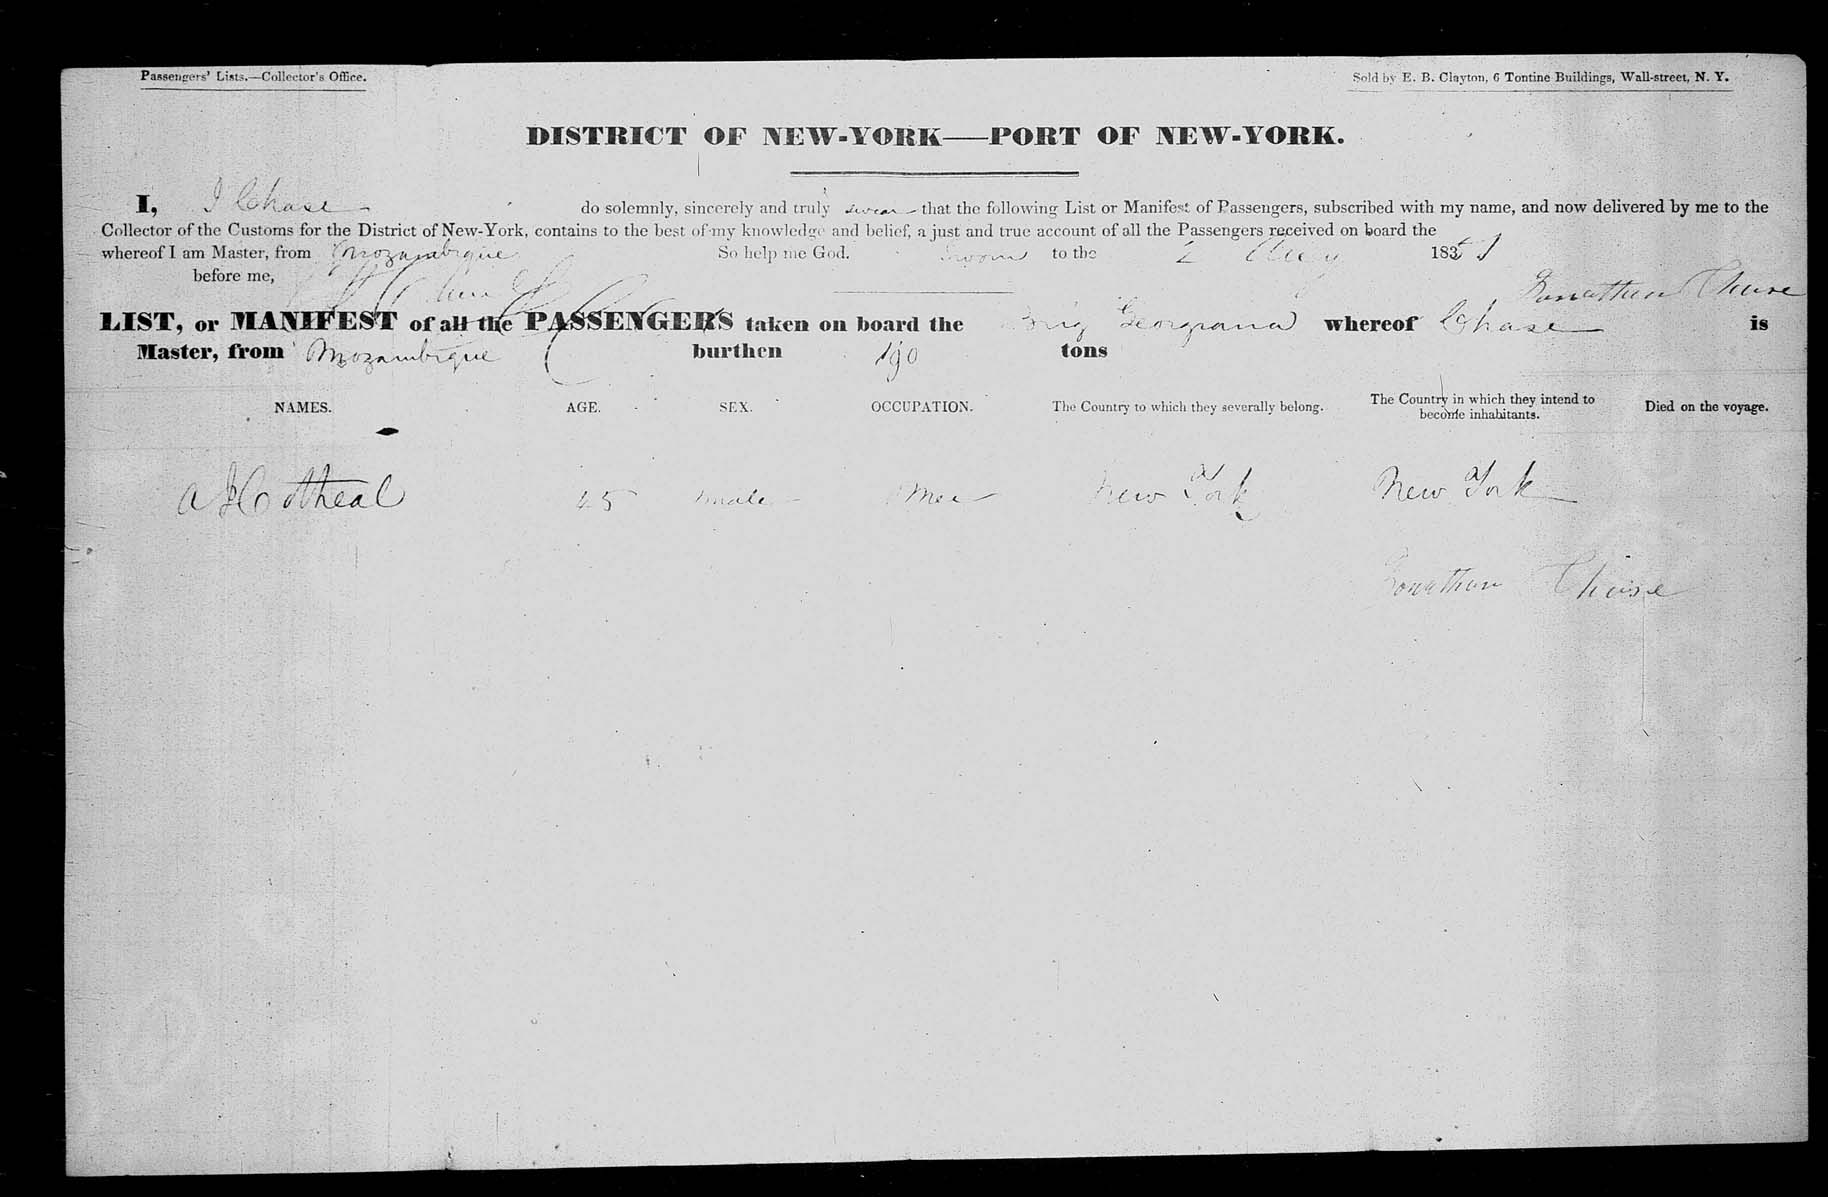 Passengers' Lists.—Collector's Office.
Sold by E. B. Clayton, 6 Tontine Buildings, Wall-street, N. Y.
DISTRICT OF NEW-YORK—PORT OF NEW-YORK.
I, J Chase do solemnly, sincerely and truly swear that the following List or Manifest of Passengers, subscribed with my name, and now delivered by me to the
Collector of the Customs for the District of New-York, contains to the best of my knowledge and belief, a just and true account of all the Passengers received on board the
whereof I am Master, from Mozambique So help me God. Sworn to the 2 183
before me,
Jonathan Chase
LIST, or MANIFEST of all the PASSENGERS taken on board the Brig Georgiana whereof Chase is
Master, from Mozambique burthen 190 tons
NAMES. AGE. SEX. OCCUPATION. The Country to which they severally belong. The Country in which they intend to become inhabitants. Died on the voyage.
A J Cotheal 25 male Mer New York New York
Jonathan Chase